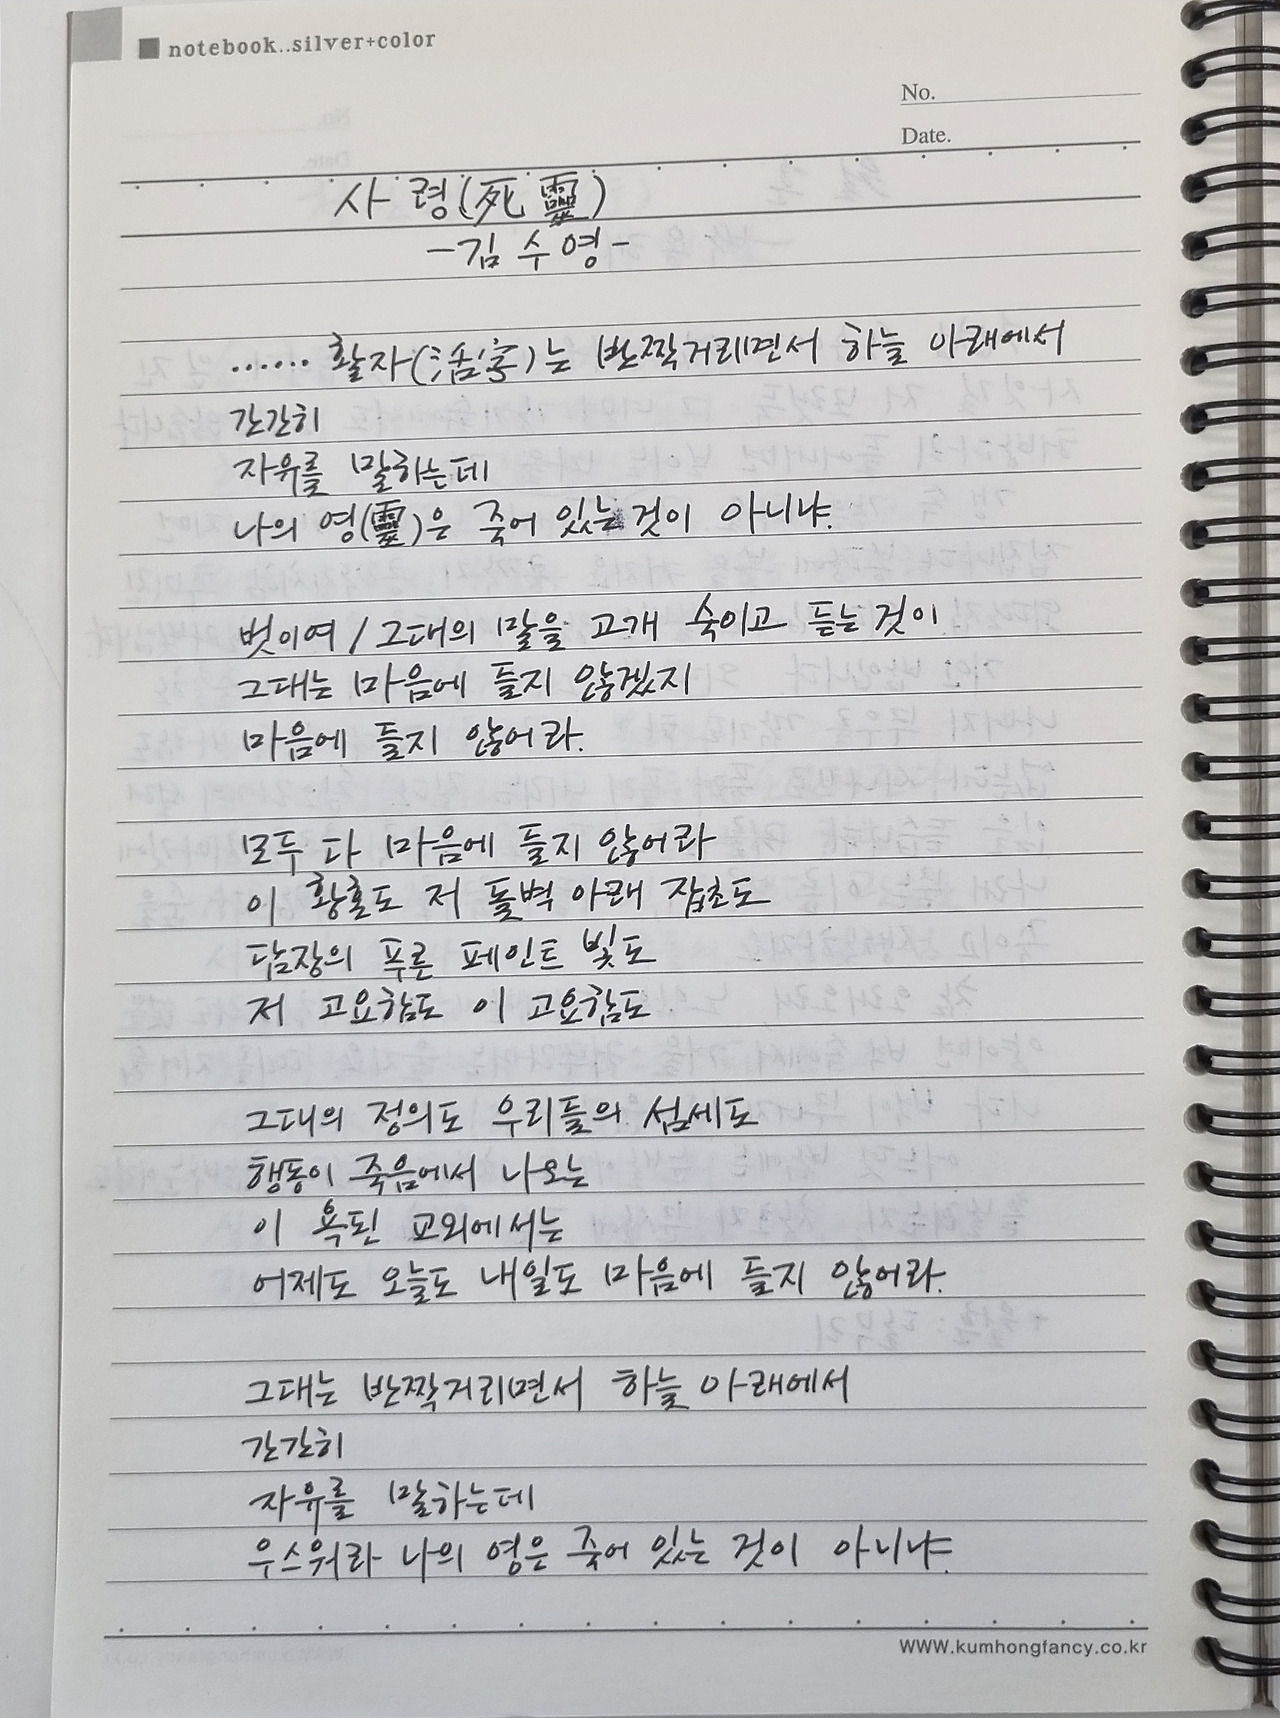 notebook..silver+color
No.
Date.
사령(死靈)
-김수영-
...... 활자(活字)는 반짝거리면서 하늘 아래에서
간간히
자유를 말하는데
나의 영(靈)은 죽어 있는 것이 아니냐.
벗이여 / 그대의 말을 고개 숙이고 듣는 것이
그대는 마음에 들지 않겠지
마음에 들지 않어라.
모두 다 마음에 들지 않어라
이 황홀도 저 돌벽 아래 잡초도
담장의 푸른 페인트 빛도
저 고요함도 이 고요함도
그대의 정의도 우리들의 섬세도
행동이 죽음에서 나오는
이 욕된 교외에서는
어제도 오늘도 내일도 마음에 들지 않어라.
그대는 반짝거리면서 하늘 아래에서
간간히
자유를 말하는데
우스워라 나의 영은 죽어 있는 것이 아니냐.
www.kumhongfancy.co.kr